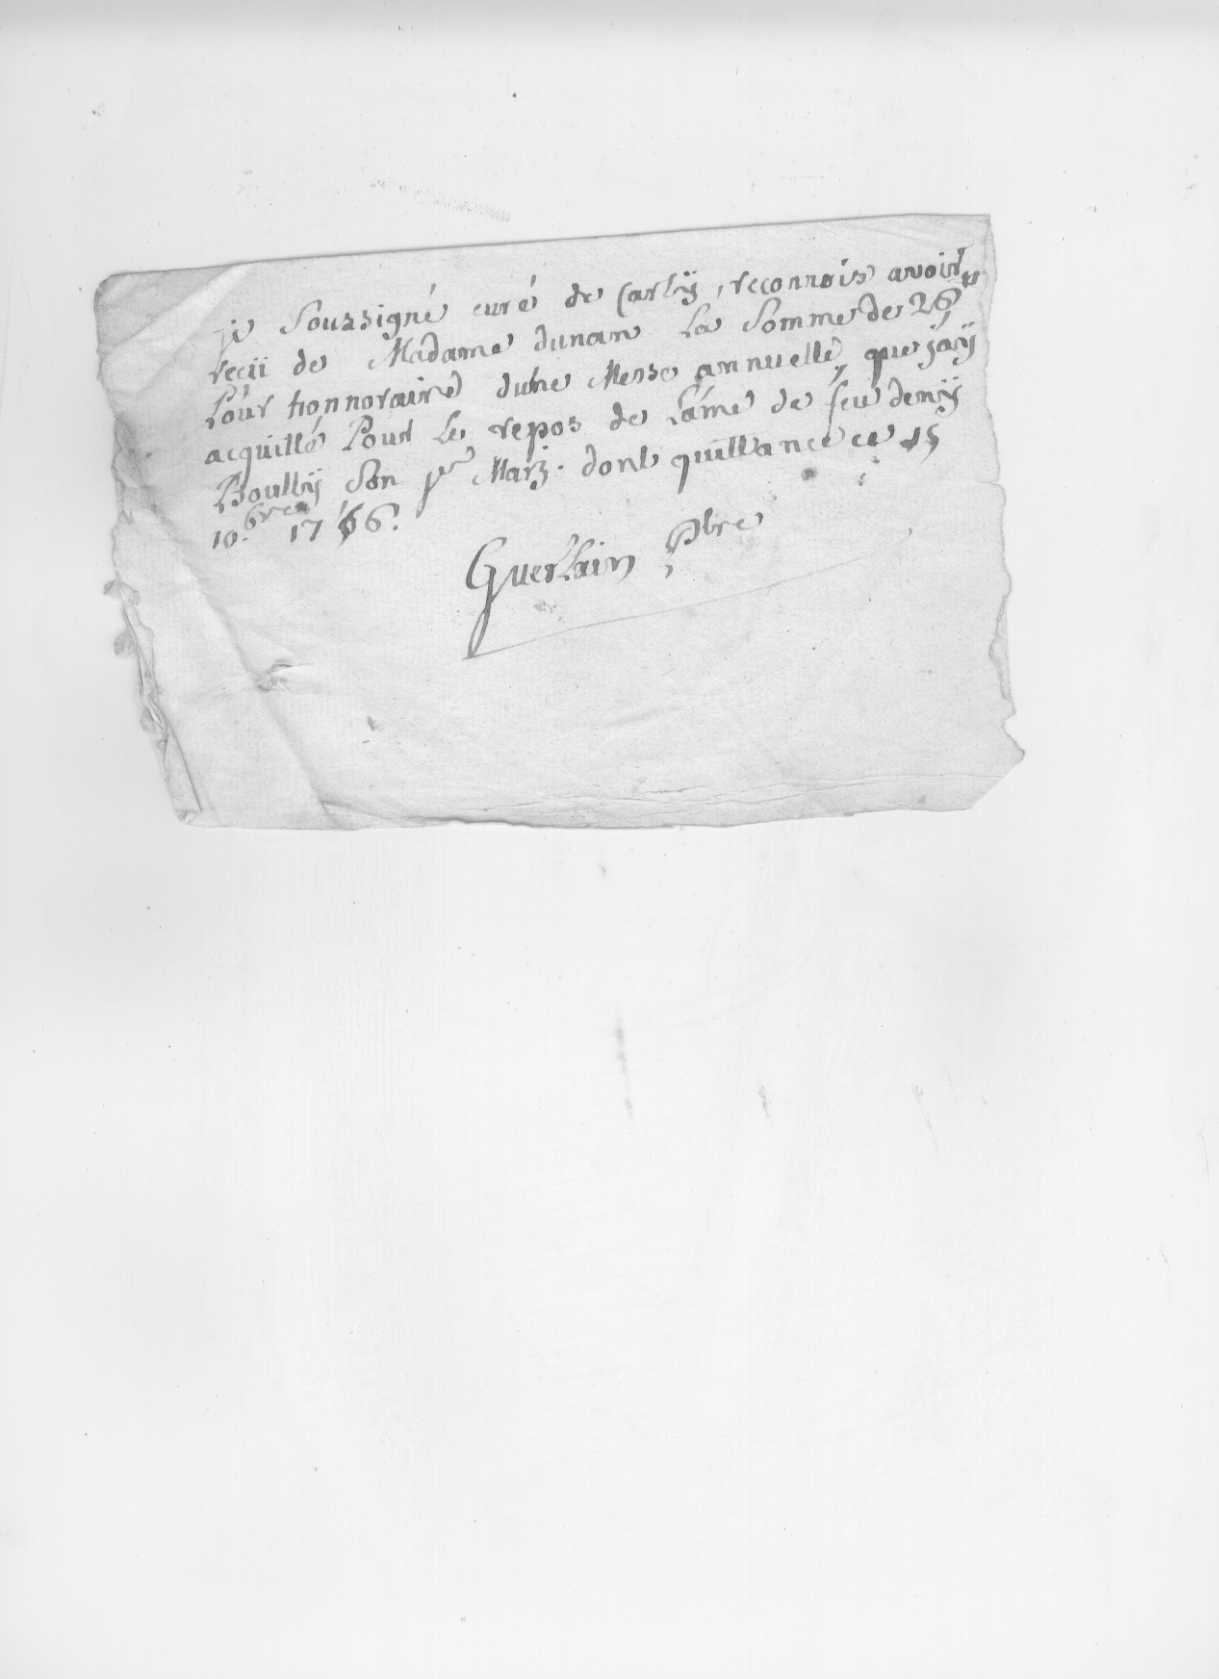 je soussigné curé de Carly, reconnois avoir
recü de Madame dunan La Somme de 26 ₶
Pour honnoraire dune Messe annuelle, que jaÿ
acquitté Pour Le repos de L'ame de feu denÿ
Boullÿ Son pr Marÿ. dont quittance ce 15
10.bre 1766.
Guerlain Pbre